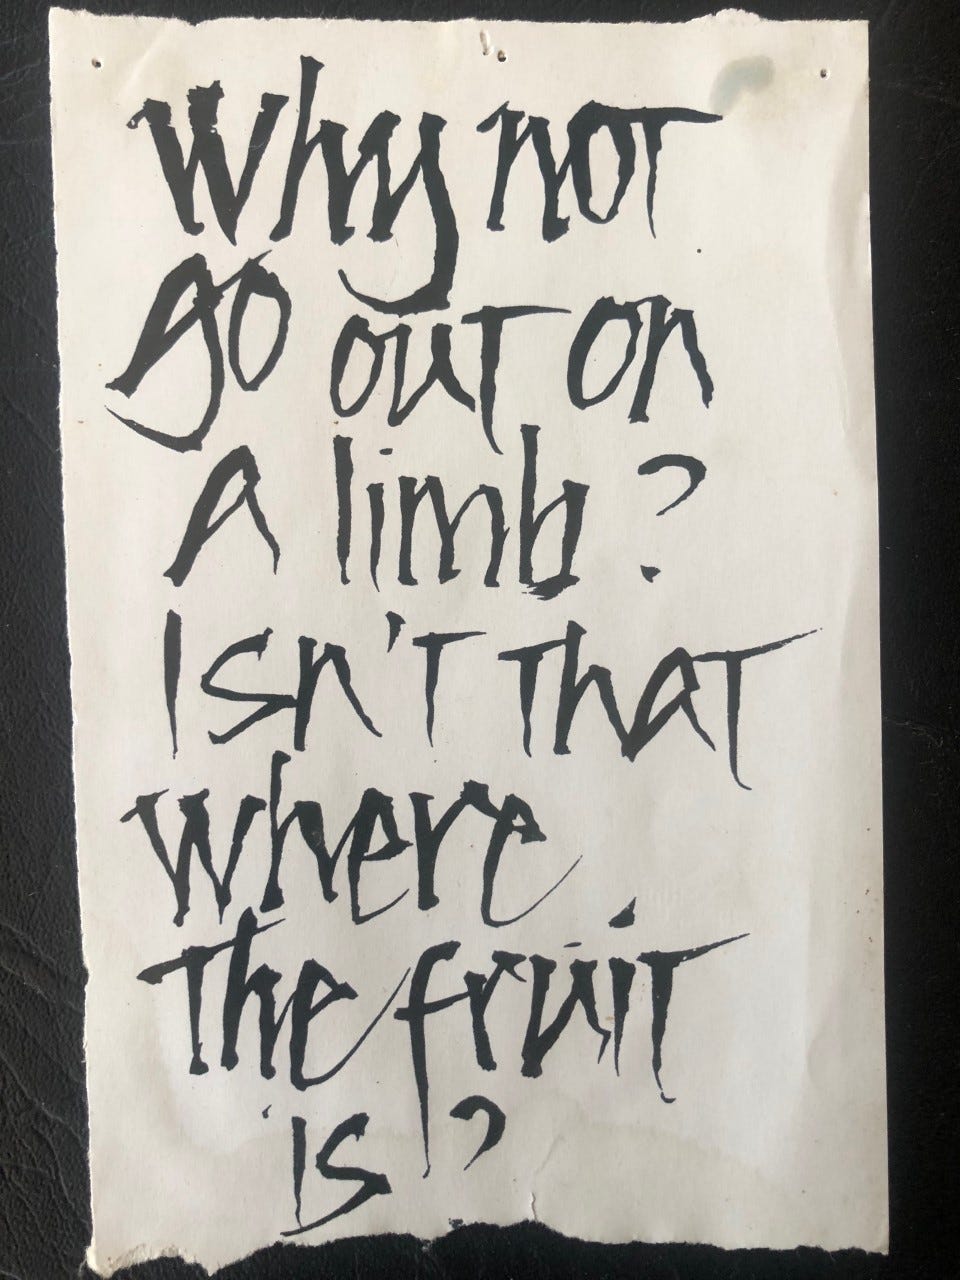 Why not
go out on
A limb?
Isn't that
where
the fruit
is?